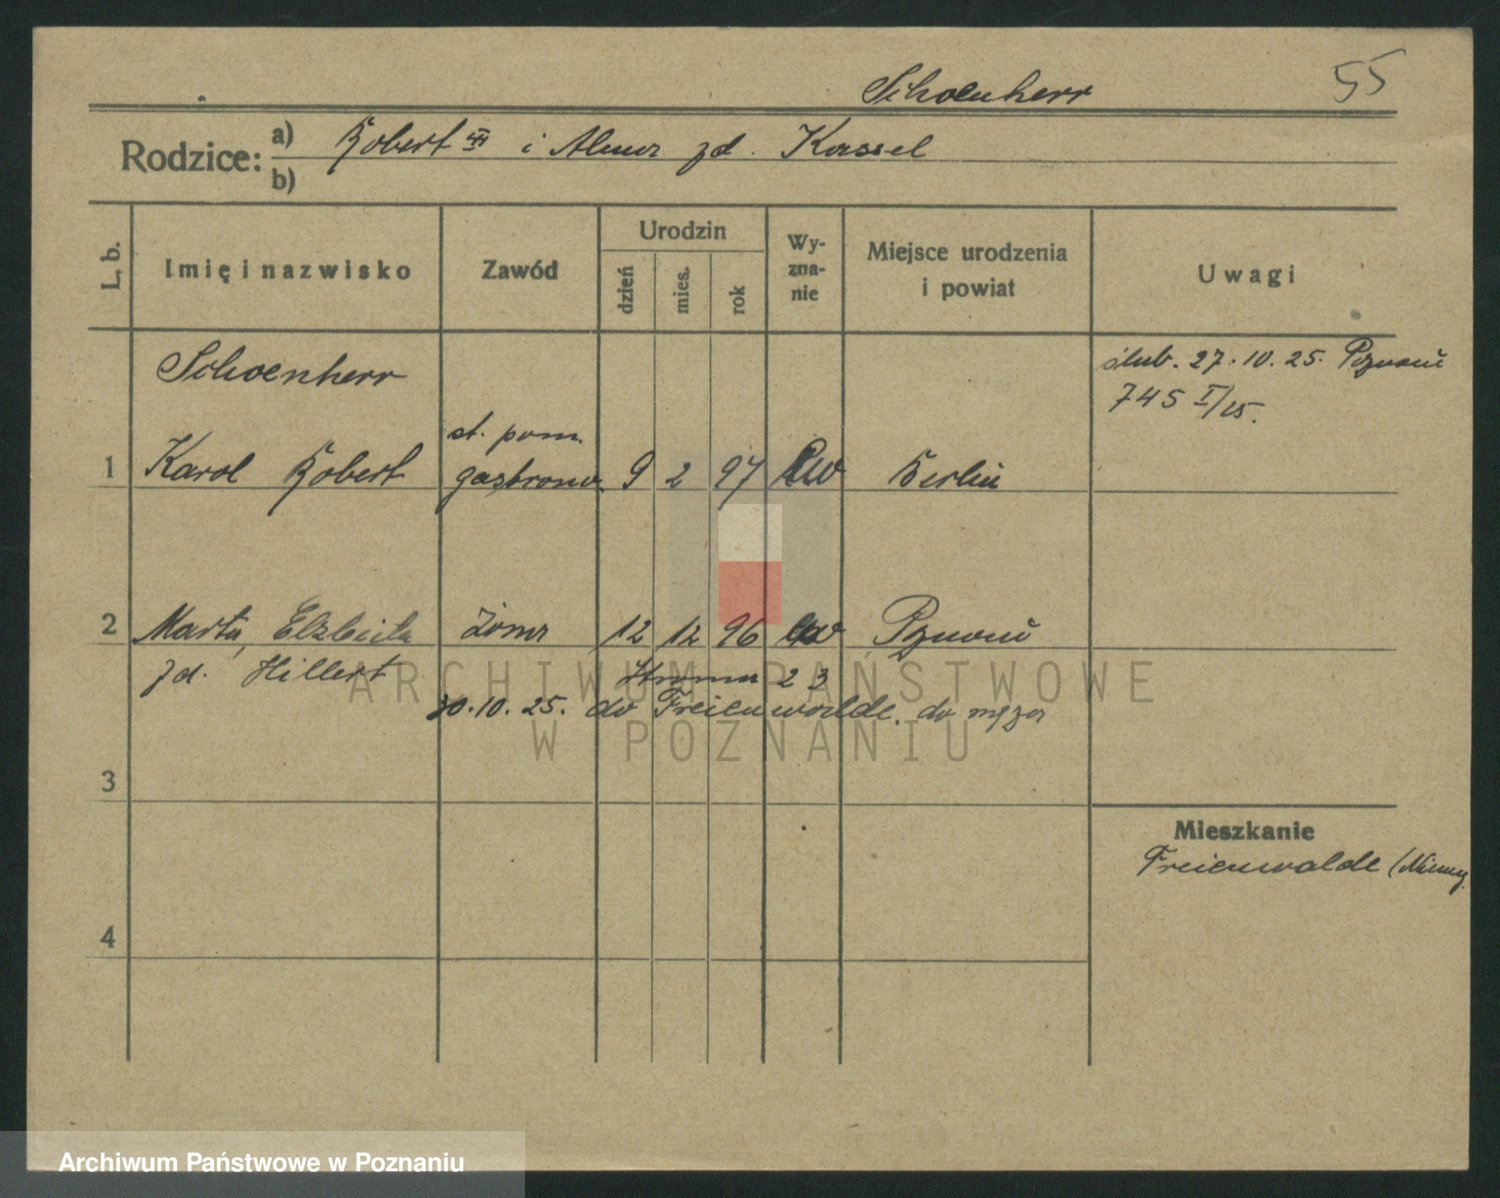 Schoenherr
55
Rodzice: a) Robert i Alma zd. Kassel
b)
L. b.
Imię i nazwisko
Zawód
Urodzin
dzień
mies.
rok
Wy-
zna-
nie
Miejsce urodzenia
i powiat
Uwagi
Schoenherr
ślub. 27.10.25. Poznań
745 I/25.
st. pom.
1 Karol Robert gastronom. 9 2 97 ew Berlin
2 Marta, Elżbieta żona 12 12 96 ew Poznań
zd. Hillert Stroma 23
30.10.25. do Freienwalde. do męża
3
Mieszkanie
Freienwalde (Niemcy
4
ARCHIWUM PAŃSTWOWE
W POZNANIU
Archiwum Państwowe w Poznaniu